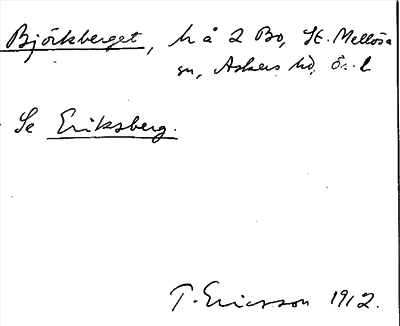 Björksberget, h å 2 Bo, St. Mellösa
sn, Askers hd, Ör. l
Se Eriksberg.
T. Ericsson 1912.